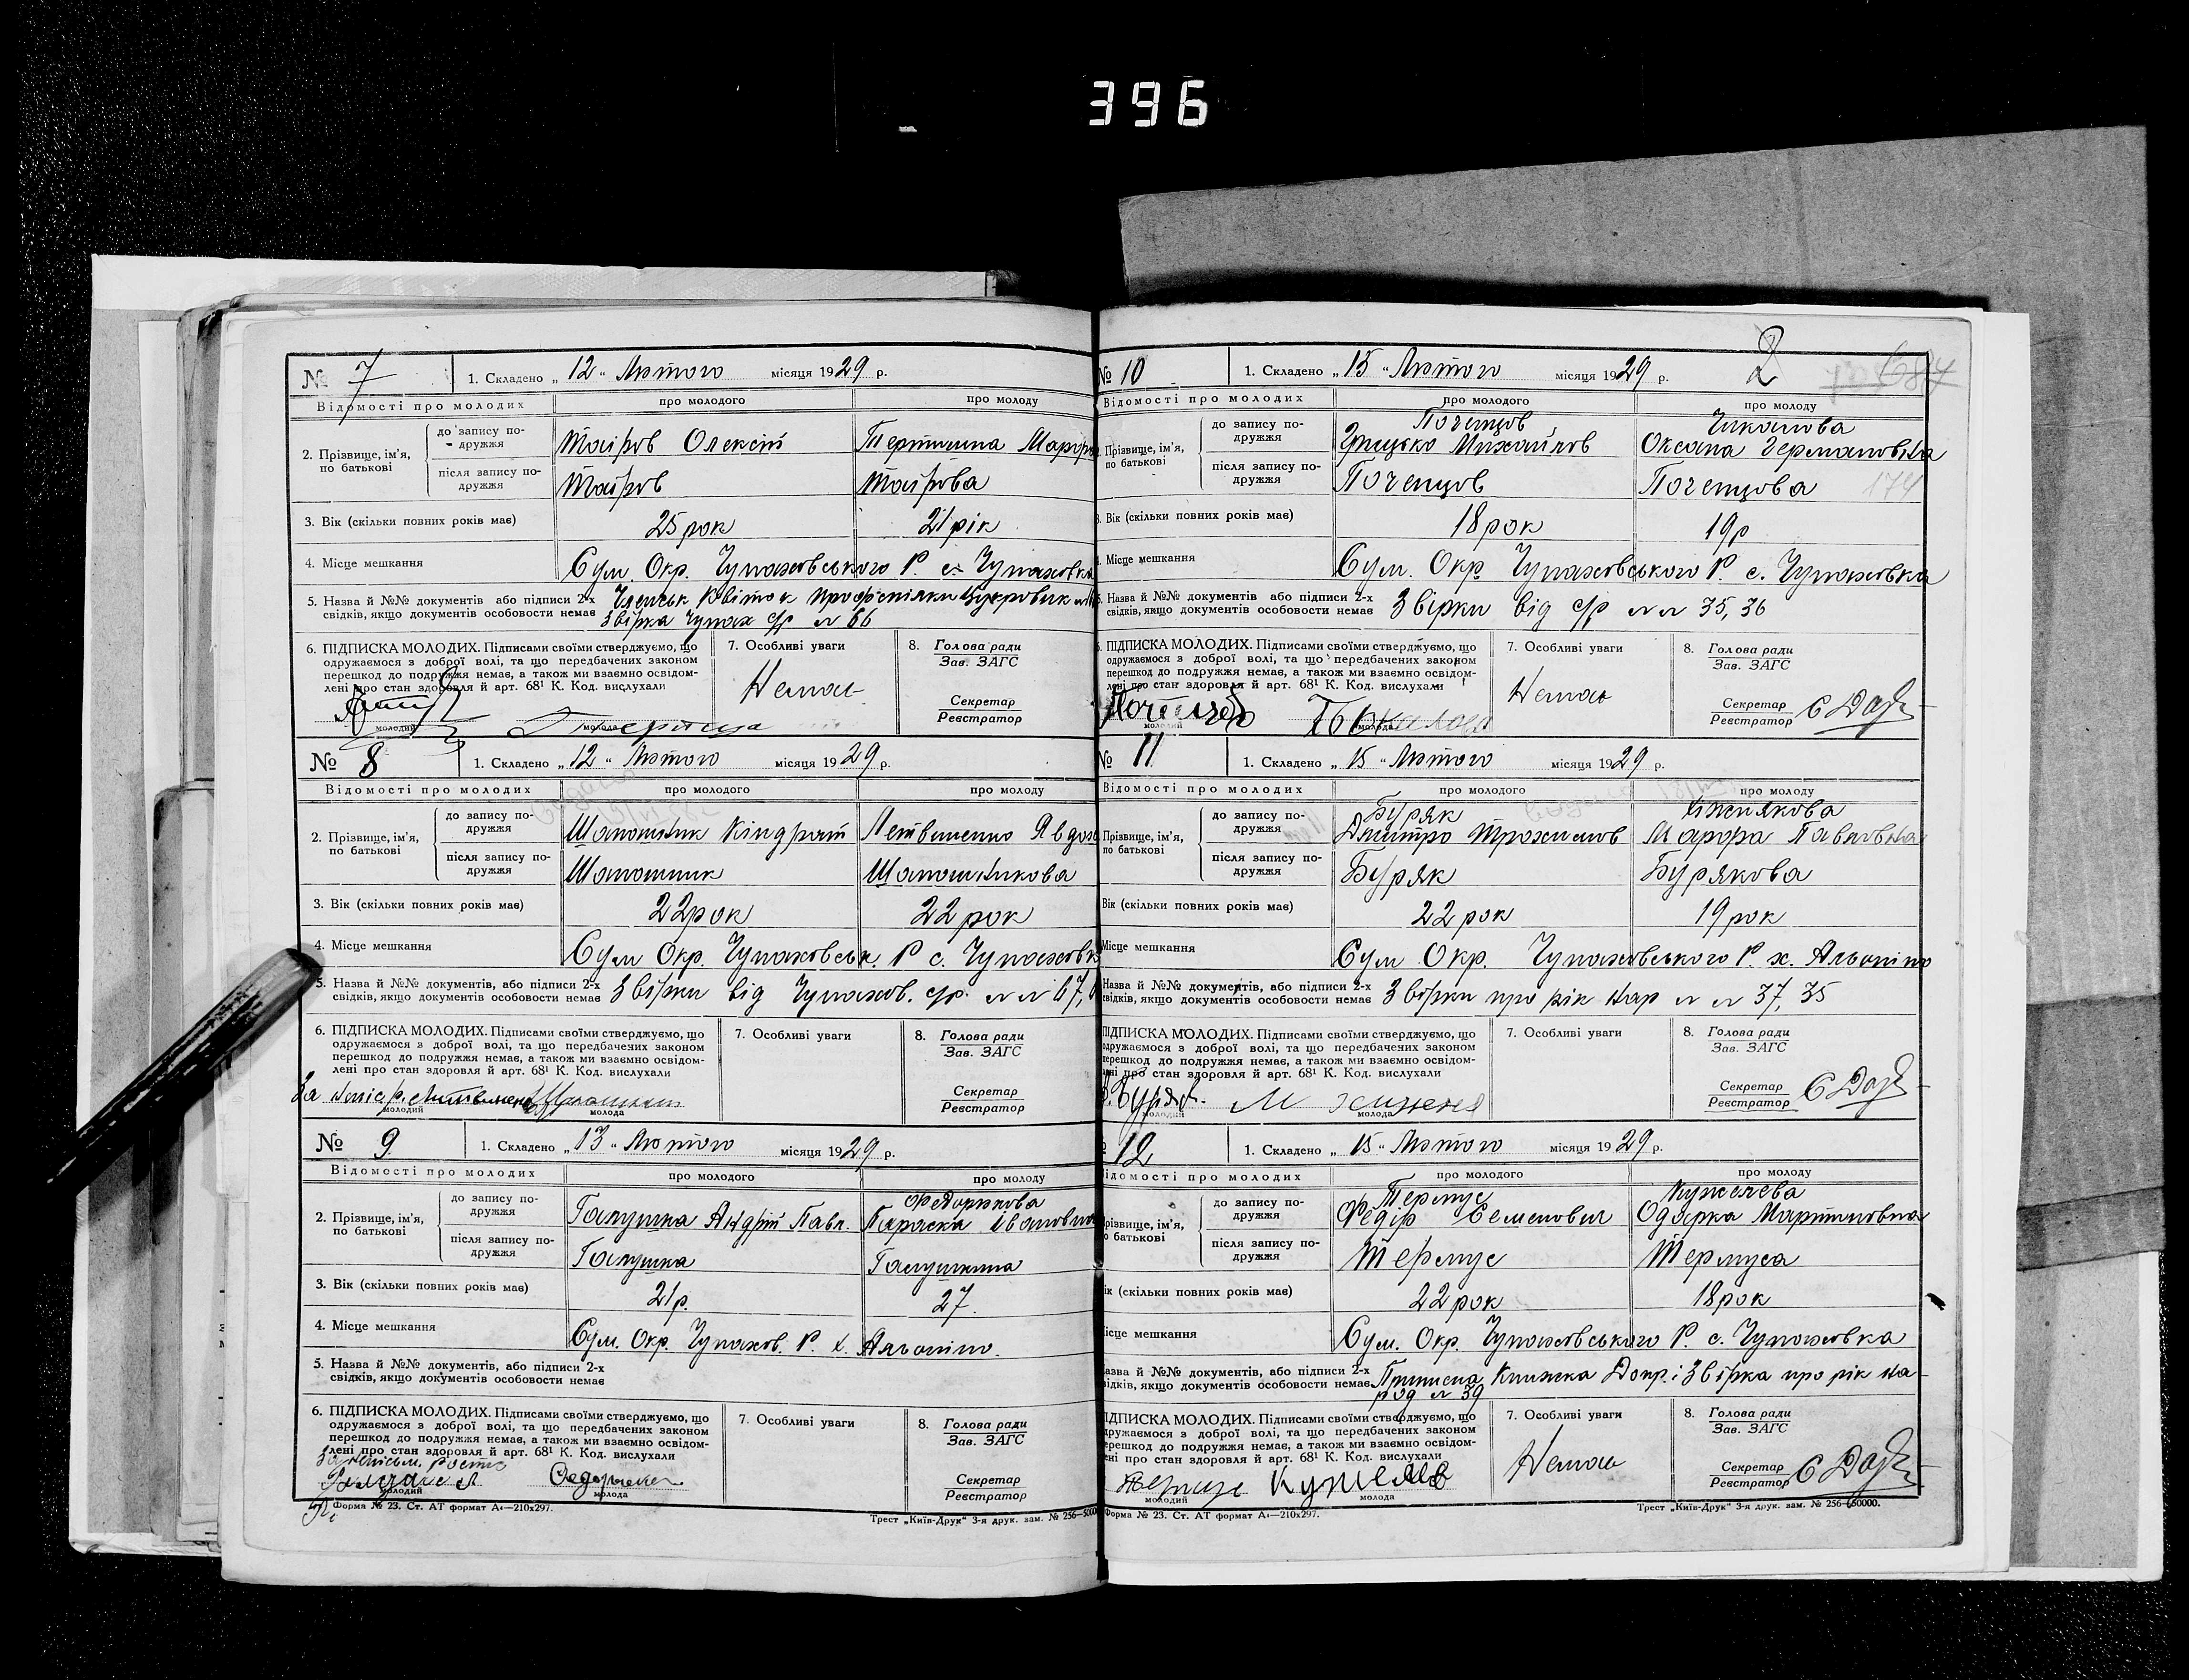 396
№ 7
1. Складено „ 12 “ Лютого місяця 1929 р.
Відомості про молодих
про молодого
про молоду
2. Прізвище, ім'я, по батькові
до запису подружжя
Таіров Олексій
Тертишна
після запису подружжя
Таіров
Таірова
3. Вік (скільки повних років має)
25 рок
21 рік
4. Місце мешкання
Сум. Окр. Чупаховського Р. с. Чупаховка
5. Назва й №№ документів або підписи 2-х
свідків, якщо документів особовости немає
Членськ Квіток
Звірка Чупах с/р № 66
6. ПІДПИСКА МОЛОДИХ. Підписами своїми стверджуємо, що
одружаємося з доброї волі, та що передбачених законом
перешкод до подружжя немає, а також ми взаємно освідом-
лені про стан здоровля й арт. 68¹ К. Код. вислухали
молодий
молода
7. Особливі уваги
Немає
8. Голова ради
Зав. ЗАГС
Секретар
Реєстратор
№ 8
1. Складено „ 12 “ Лютого місяця 1929 р.
Відомості про молодих
про молодого
про молоду
2. Прізвище, ім'я, по батькові
до запису подружжя
Шапошник Кіндрат
Летвиненко
після запису подружжя
Шапошник
Шапошникова
3. Вік (скільки повних років має)
22 рок
22 рок
4. Місце мешкання
Сум Окр. Чупаховськ. Р с. Чупаховк
5. Назва й №№ документів, або підписи 2-х
свідків, якщо документів особовости немає
Звірки від Чупахов. с/р. № № 67,
6. ПІДПИСКА МОЛОДИХ. Підписами своїми стверджуємо, що
одружаємося з доброї волі, та що передбачених законом
перешкод до подружжя немає, а також ми взаємно освідом-
лені про стан здоровля й арт. 68¹ К. Код. вислухали
молодий
молода
7. Особливі уваги
8. Голова ради
Зав. ЗАГС
Секретар
Реєстратор
№ 9
1. Складено „ 13 “ Лютого місяця 1929 р.
Відомості про молодих
про молодого
про молоду
2. Прізвище, ім'я, по батькові
до запису подружжя
Галушка Андрій Павл.
Параска Івановна
після запису подружжя
Галушка
Галушкина
3. Вік (скільки повних років має)
21 р.
27.
4. Місце мешкання
Сум. Окр. Чупахов. Р. х. Альоніно.
5. Назва й №№ документів, або підписи 2-х
свідків, якщо документів особовости немає
6. ПІДПИСКА МОЛОДИХ. Підписами своїми стверджуємо, що
одружаємося з доброї волі, та що передбачених законом
перешкод до подружжя немає, а також ми взаємно освідом-
лені про стан здоровля й арт. 68¹ К. Код. вислухали
молодий
молода
7. Особливі уваги
8. Голова ради
Зав. ЗАГС
Секретар
Реєстратор
Форма № 23. Ст. АТ формат А₄—210х297.
Трест „Київ-Друк“ 3-я друк. зам. № 256—5000
2
№ 10
1. Складено „ 15 “ Лютого місяця 1929 р.
Відомості про молодих
про молодого
про молоду
Прізвище, ім'я, по батькові
до запису подружжя
Поченцов
Грицько Михайлов
Чикалова
Оксана Германовна
після запису подружжя
Поченцов
Поченцова
174
Вік (скільки повних років має)
18 рок
19 р
Місце мешкання
Сум. Окр. Чупаховського Р. с. Чупаховка
Назва й №№ документів, або підписи 2-х
свідків, якщо документів особовости немає
Звірки від с/р № № 35, 36
ПІДПИСКА МОЛОДИХ. Підписами своїми стверджуємо, що
одружаємося з доброї волі, та що передбачених законом
перешкод до подружжя немає, а також ми взаємно освідом-
лені про стан здоровля й арт. 68¹ К. Код. вислухали
молодий
молода
7. Особливі уваги
Немає
8. Голова ради
Зав. ЗАГС
Секретар
Реєстратор
№ 11
1. Складено „ 15 “ Лютого місяця 1929 р.
Відомості про молодих
про молодого
про молоду
Прізвище, ім'я, по батькові
до запису подружжя
Буряк
Дмитро Трохимов
Павловна
після запису подружжя
Буряк
Бурякова
Вік (скільки повних років має)
22 рок
19 рок
Місце мешкання
Сум Окр. Чупаховського Р. х. Альоніно
Назва й №№ документів, або підписи 2-х
свідків, якщо документів особовости немає
Звірки про рік нар № № 37, 35
ПІДПИСКА МОЛОДИХ. Підписами своїми стверджуємо, що
одружаємося з доброї волі, та що передбачених законом
перешкод до подружжя немає, а також ми взаємно освідом-
лені про стан здоровля й арт. 68¹ К. Код. вислухали
молодий
молода
7. Особливі уваги
8. Голова ради
Зав. ЗАГС
Секретар
Реєстратор
12
1. Складено „ 15 “ Лютого місяця 1929 р.
ідомості про молодих
про молодого
про молоду
різвище, ім'я, о батькові
до запису подружжя
Термус
Федір Семенович
Кужелева
Одарка Мартиновна
після запису подружжя
Термус
Термуса
ік (скільки повних років має)
22 рок
18 рок
ісце мешкання
Сум. Окр. Чупаховського Р. с. Чупаховка
азва й №№ документів, або підписи 2-х
ідків, якщо документів особовости немає
Приписна Книжка Допр. і Звірка про рік на-
род № 39
ІДПИСКА МОЛОДИХ. Підписами своїми стверджуємо, що
дружаємося з доброї волі, та що передбачених законом
ерешкод до подружжя немає, а також ми взаємно освідом-
ені про стан здоровля й арт. 68¹ К. Код. вислухали
молодий
Кужелев
молода
7. Особливі уваги
Немає
8. Голова ради
Зав. ЗАГС
Секретар
Реєстратор
Форма № 23. Ст. АТ формат А₄—210х297.
Трест „Київ-Друк“ 3-я друк. зам. № 256—50000.